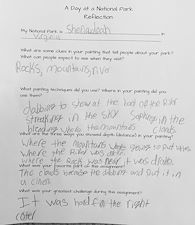 A Day at a National Park
Reflection
My National Park is Shenandoah in
Virginia
What are some clues in your painting that tell people about your park?
What can people expect to see when they visit?
Rocks, mountains, river
What painting techniques did you use? Where in your painting did
you use them?
dabbing to show at the
streaking in the sky
bleeding where the mountains
What are the three ways you showed depth (distance) in your painting?
Where the mountains
where the River was
where the Rock was
What was your favorite part of this assignment?
The clouds because the dabbing and put it in
a circle
What was your greatest challenge during this assignment?
It was hard the right
color